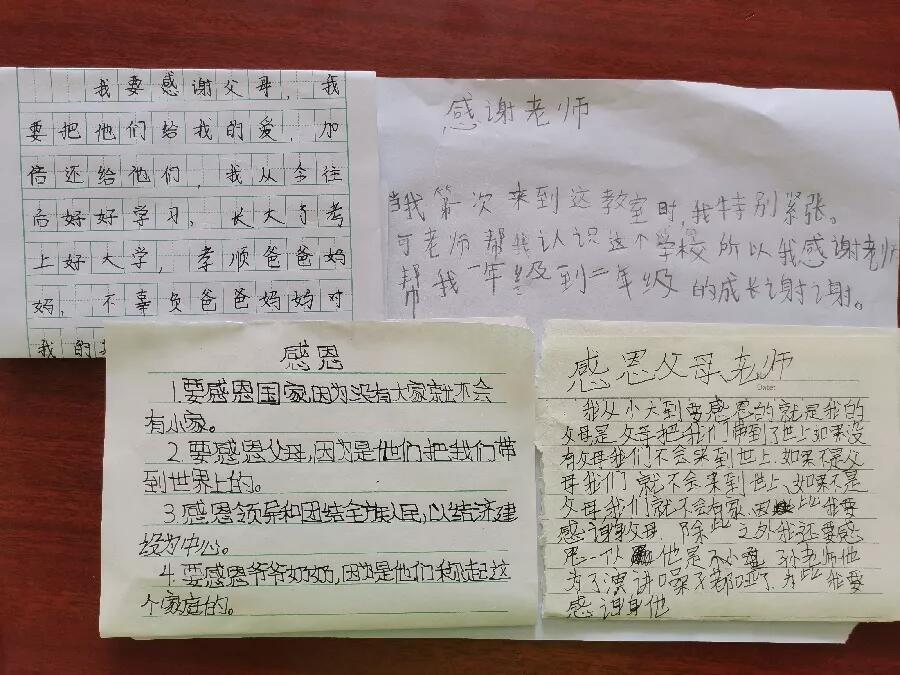 我要感谢父母，我
要把他们给我的爱，加
倍还给他们，我从今往
后好好学习，长大了考
上好大学，孝顺爸爸妈
妈，不辜负爸爸妈妈对
我的
感谢老师
当我第一次来到这教室时,我特别紧张。
可老师帮我认识这个学校所以我感谢老师
帮我一年级到二年级的成长谢谢。
感恩
1.要感恩国家,因为没有大家就不会
有小家。
2.要感恩父母,因为是他们把我们带
到世界上的。
3.感恩领导和团结全族人民,以经济建
设为中心。
4.要感恩爷爷奶奶,因为是他们称起这
个家庭的。
感恩父母、老师
Date:
我从小大到要感恩的就是我的
父母是父母把我们带到了世上如果没
有父母我们不会来到世上、如果不是父
母我们就不会来到世上、如果不是
父母我们就不会有家、因此我要
感谢父母、除此之外我还要感
恩一人他是孙老师他
为了演讲嗓子都哑了为此我要
感谢他